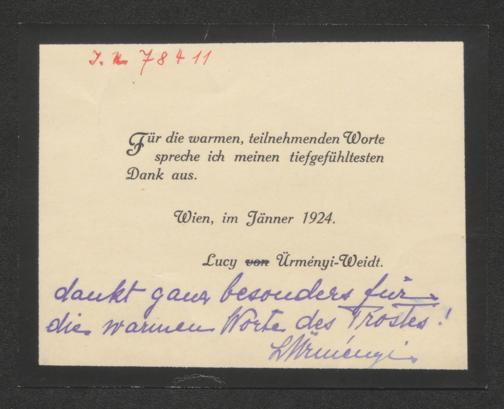 J. N. 78411
Für die warmen, teilnehmenden Worte
spreche ich meinen tiefgefühltesten
Dank aus.
Wien, im Jänner 1924.
Lucy von Ürményi-Weidt.
dankt ganz besonders für
die warmen Worte des Trostes!
LÜrményi